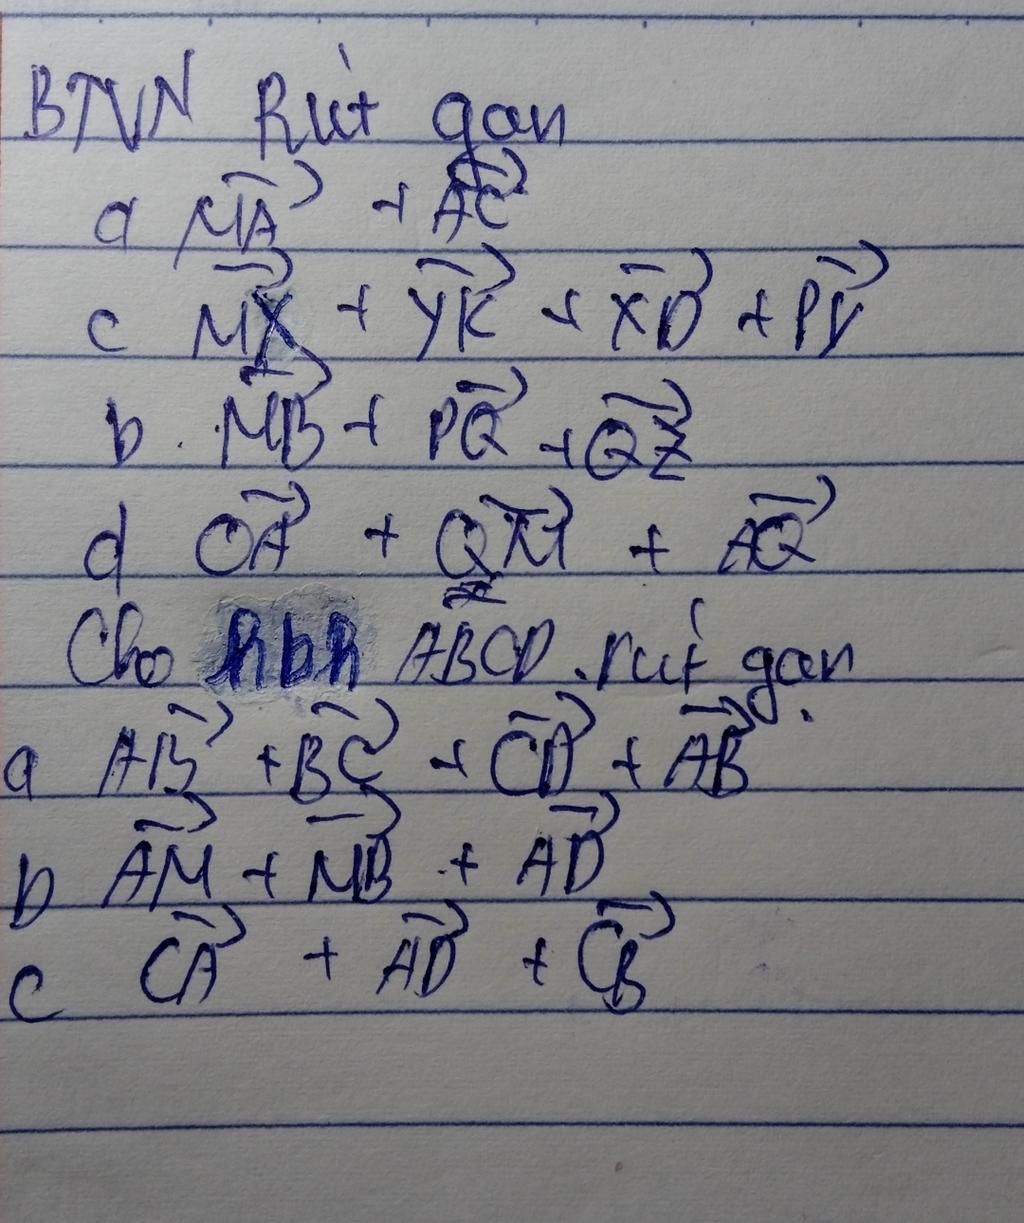 BTVN Rút gọn
a MA + AC
c MX + YK + XD + PY
b. MB + PQ + QZ
d OA + QM + AQ
Cho hbh ABCD. rút gọn
a AB + BC + CD + AB
b AM + MB + AD
c CA + AD + CB